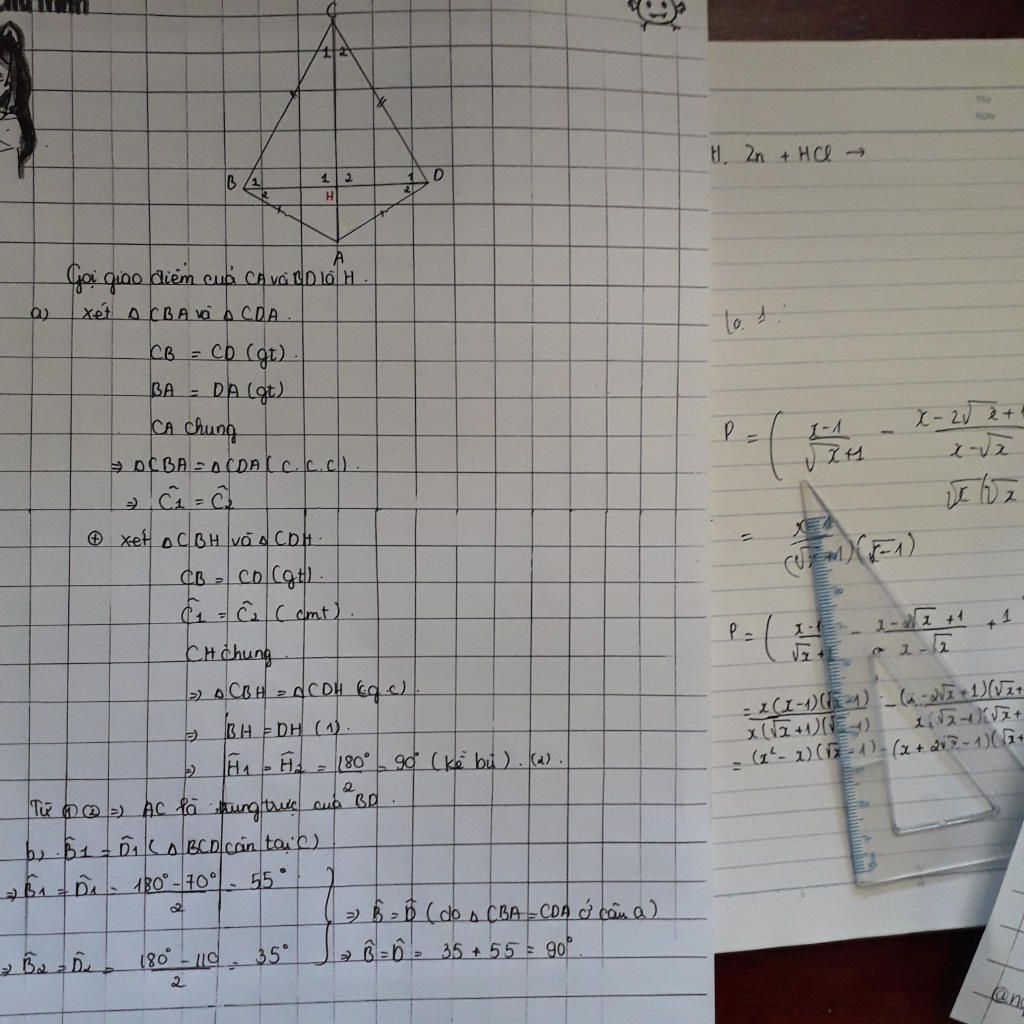 C
1 2
B 1 2
1 2
H
1 2 D
A
Gọi giao điểm cuả CA và BD là H.
a) xét Δ CBA và Δ CDA.
CB = CD (gt).
BA = DA (gt)
CA chung
=> ΔCBA = ΔCDA (C.C.C).
=> Ĉ1 = Ĉ2
⊕ xét ΔCBH và ΔCDH.
CB = CD (gt).
Ĉ1 = Ĉ2 (cmt).
CH chung.
=> ΔCBH = ΔCDH (c.g.c).
=> BH = DH (1).
=> Ĥ1 = Ĥ2 = 180°/2 = 90° (kề bù). (2).
Từ ① ② => AC là trung trực cuả BD.
b). B̂1 = D̂1 (Δ BCD cân tại C)
=> B̂1 = D̂1 = (180° - 70°)/2 = 55°
=> B̂ = D̂ (do Δ CBA = CDA ở câu a)
=> B̂2 = D̂2 = (180° - 110)/2 = 35°
=> B̂ = D̂ = 35 + 55 = 90°.
Thứ
Ngày
H. Zn + HCl →
1.
P = ( (x-1)/(√x+1) - (x-2√x+1)/(x-√x)
√x (√x
=
(√x+1)(√x-1)
P = ( - (x-2√x+1)/(x-√x) + 1
= x(x-1)(√x-1)/x(√x+1)(√x-1) - (x-2√x+1)(√x+/x(√x-1)(√x+
= (x²-x)(√x-1) - (x+2√x-1)(√x+